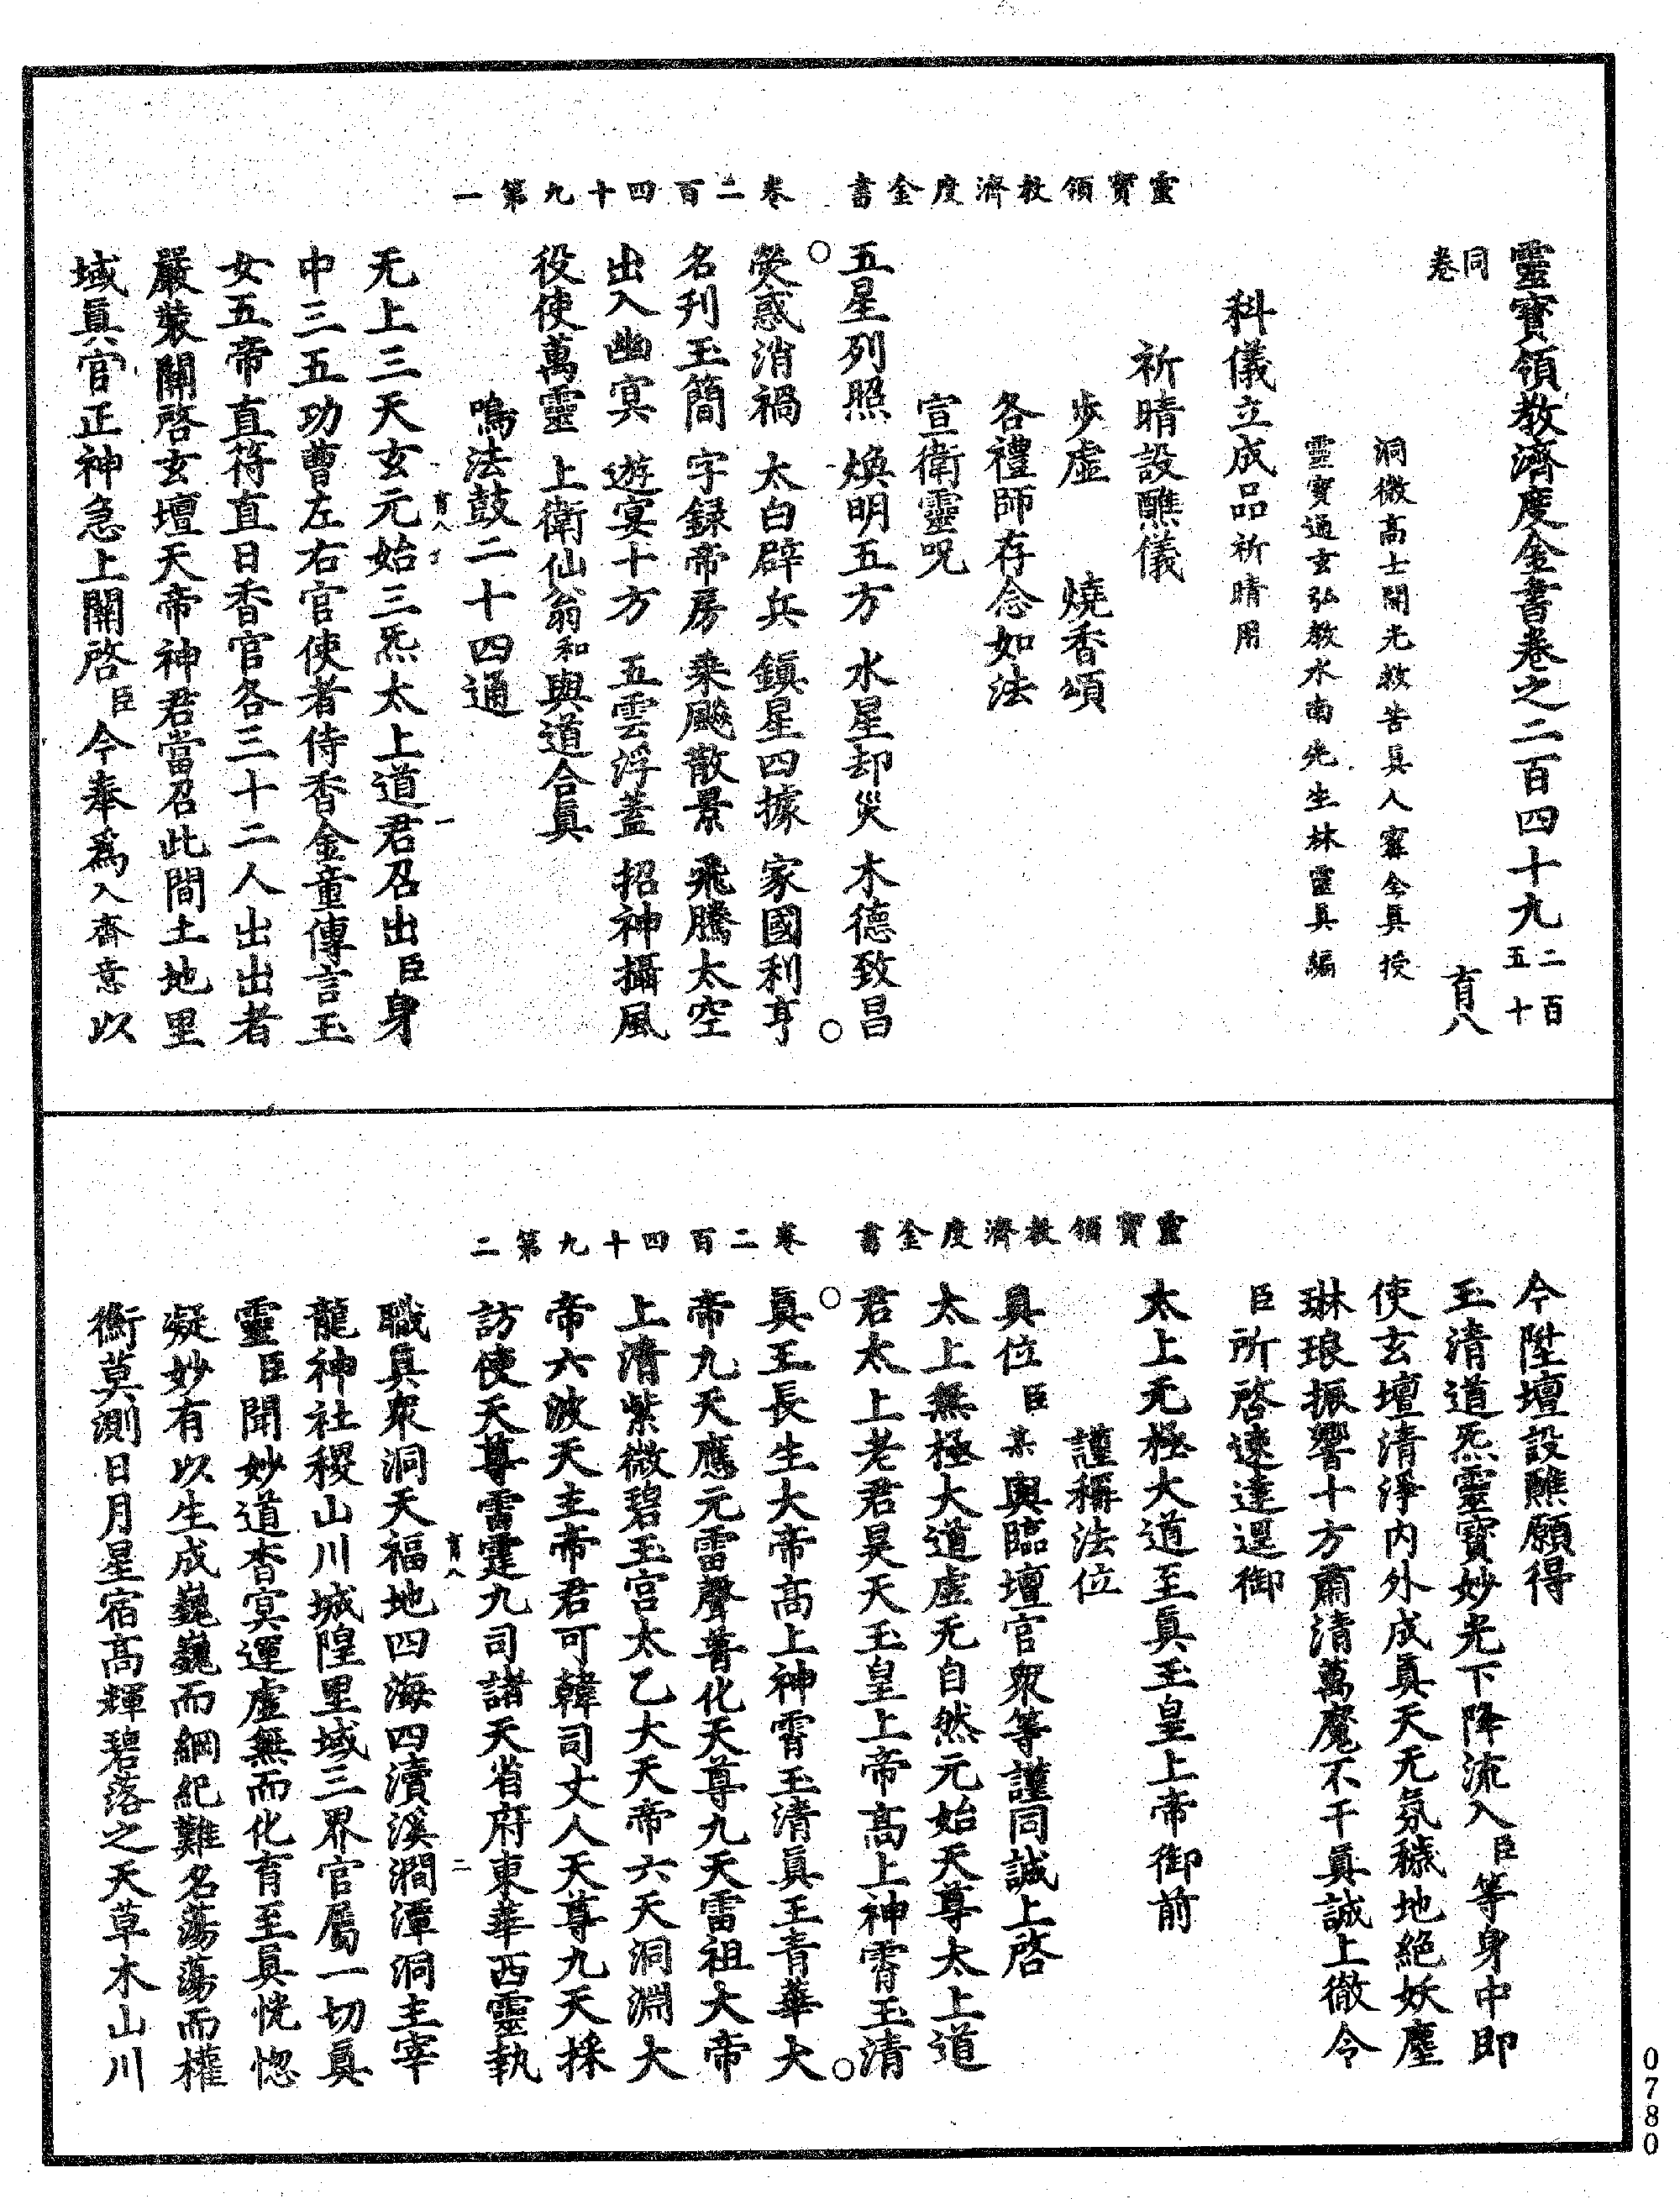 靈寶領教濟度金書卷之二百四十九 二百五十
同卷 育八
洞微高士開光救苦真人甯全真授
靈寶通玄弘教水南先生林靈真編
科儀立成品祈晴用
祈晴設醮儀
步虛 燒香頌
各禮師存念如法
宣衛靈呪
五星列照 煥明五方 水星却災 木德致昌
熒惑消禍 太白辟兵 鎮星四據 家國利亨
名刋玉簡 字録帝房 乘飈散景 飛騰太空
出入幽冥 遊宴十方 五雲浮蓋 招神攝風
役使萬靈 上衛仙翁和與道合真
鳴法鼓二十四通
无上三天玄元始三炁太上道君召出臣身
中三五功曹左右官使者侍香金童傳言玉
女五帝直符直日香官各三十二人出出者
嚴裝關啓玄壇天帝神君當召此間土地里
域真官正神急上關啓臣今奉爲入齋意以
靈寶領教濟度金書 卷二百四十九第一
育八 一
今陞壇設醮願得
玉清道炁靈寶妙光下降流入臣等身中即
使玄壇清淨内外成真天无氛穢地絶妖塵
琳琅振響十方肅清萬魔不干真誠上徹令
臣所啓速達逕御
太上无極大道至真玉皇上帝御前
謹稱法位
具位臣某與臨壇官衆等謹同誠上啓
太上無極大道虛无自然元始天尊太上道
君太上老君昊天玉皇上帝高上神霄玉清
真王長生大帝高上神霄玉清真王青華大
帝九天應元雷聲普化天尊九天雷祖大帝
上清紫微碧玉宮太乙大天帝六天洞淵大
帝六波天主帝君可韓司丈人天尊九天採
訪使天尊雷霆九司諸天省府東華西靈執
職真衆洞天福地四海四瀆溪澗潭洞主宰
龍神社稷山川城隍里域三界官屬一切真
靈臣聞妙道杳冥運虛無而化育至真恍惚
凝妙有以生成巍巍而綱紀難名蕩蕩而權
衡莫測日月星宿高輝碧落之天草木山川
靈寶領教濟度金書 卷二百四十九第二
育八 二
0780